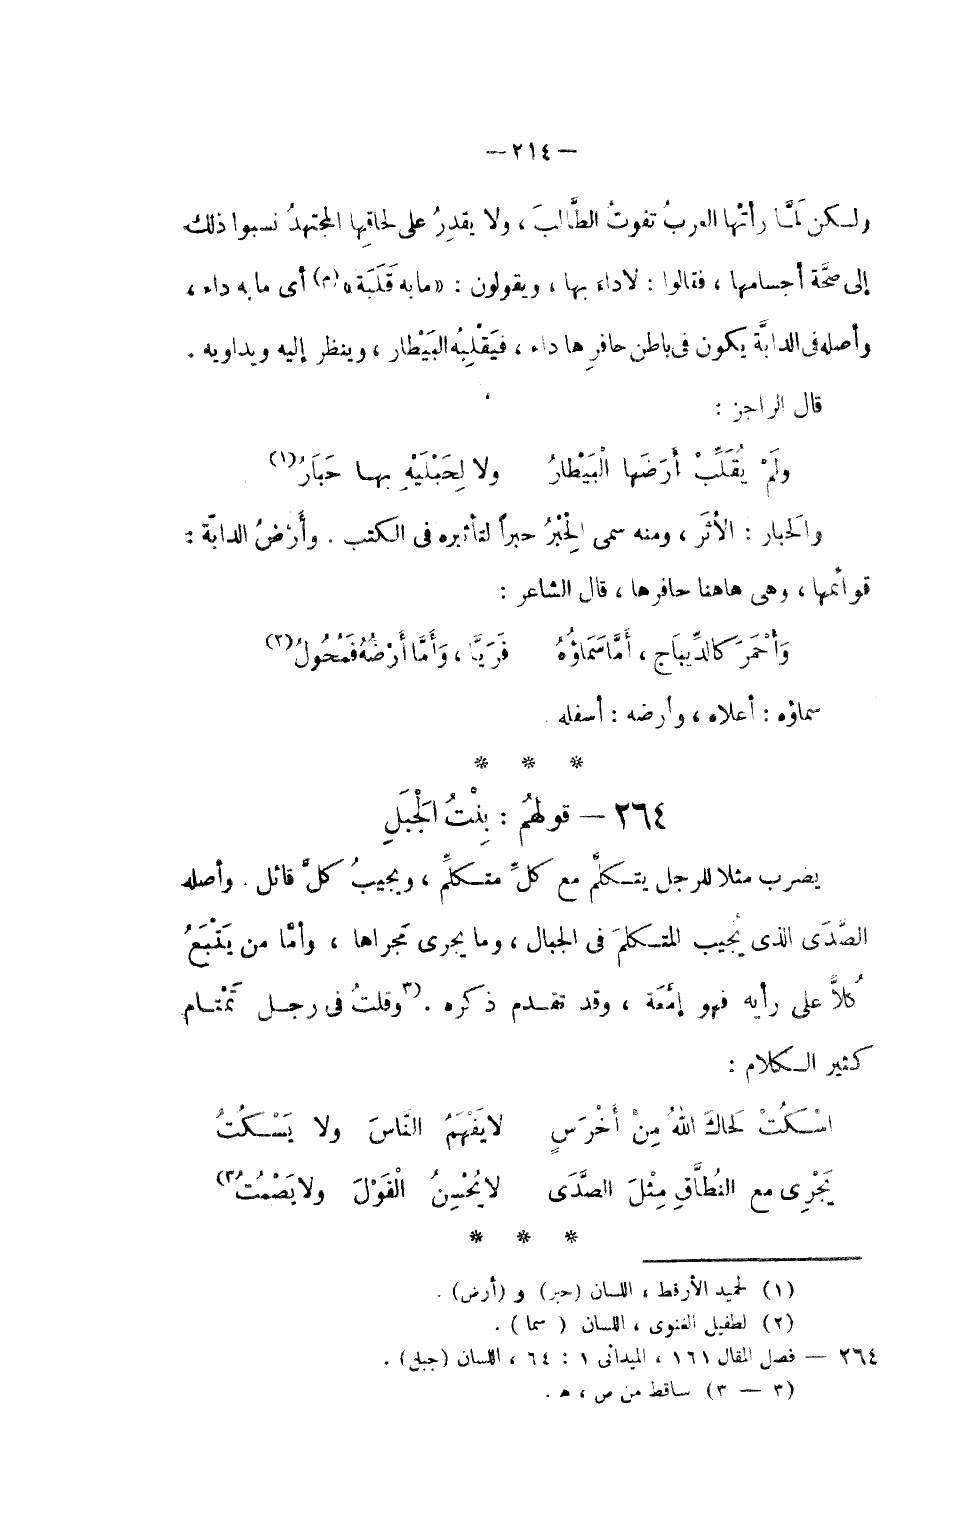 — ٢١٤ —
ولكن لمَّا رأتْها العربُ تفوتُ الطَّالبَ ، ولا يقدِرُ على لحاقِها المجتهدُ نسبوا ذلك
إلى صحَّة أجسامها ، فقالوا : لاداءَ بها ، ويقولون : «مابه قَلَبَة» (م) أى مابه داء ،
وأصله فى الدابَّة يكون فى باطن حافرِها داء ، فيَقْلِبُه البَيْطار ، وينظر إليه ويداويه .
قال الراجز :
ولَمْ يُقَلِّبْ أَرْضَها الْبَيْطارُ ولا لِحَبْلَيْهِ بها حَبَارُ (١)
والحبار : الأثَر ، ومنه سمى الحِبْرُ حبراً لتأثيره فى الكتب . وأَرْضُ الدابّة :
قوائمها ، وهى هاهنا حافرها ، قال الشاعر :
وَأَحْمَرَ كالدِّيبَاجِ ، أَمَّا سَمَاؤُهُ فَرَيَّا ، وَأَمَّا أَرْضُهُ فَمُحُولُ (٢)
سماؤه : أعلاه ، وأرضه : أسفله .
* * *
٢٦٤ — قولهُم : بِنْتُ الجْبَلِ
يضرب مثلا للرجل يتكلَّم مع كلِّ متكلِّم ، ويجيبُ كلَّ قائل . وأصله
الصَّدَى الذى يُجيب المتكلمَ فى الجبال ، وما يجرى مجراها ، وأمَّا من يَتْبَعُ
كُلاًّ على رأيه فهو إمَّعَة ، وقد تقدم ذكره . (٣وقلتُ فى رجل تَمْتَام
كثير الكلام :
اسْكُتْ لَحَاكَ اللهُ مِنْ أَخْرَسٍ لايَفْهَمُ النَّاسَ ولا يَسْكُتُ
يَجْرِى مع النُطَّاقِ مِثْلَ الصَّدَى لايُحْسِنُ الْقَوْلَ ولايَصْمُتُ ٣)
* * *
(١) لحميد الأرقط ، اللسان (حبر) و (أرض) .
(٢) لطفيل الغنوى ، اللسان ( سما ) .
٢٦٤ — فصل المقال ١٦١ ، الميدانى ١ : ٦٤ ، اللسان (جبل) .
(٣ — ٣) ساقط من ص ، هـ .